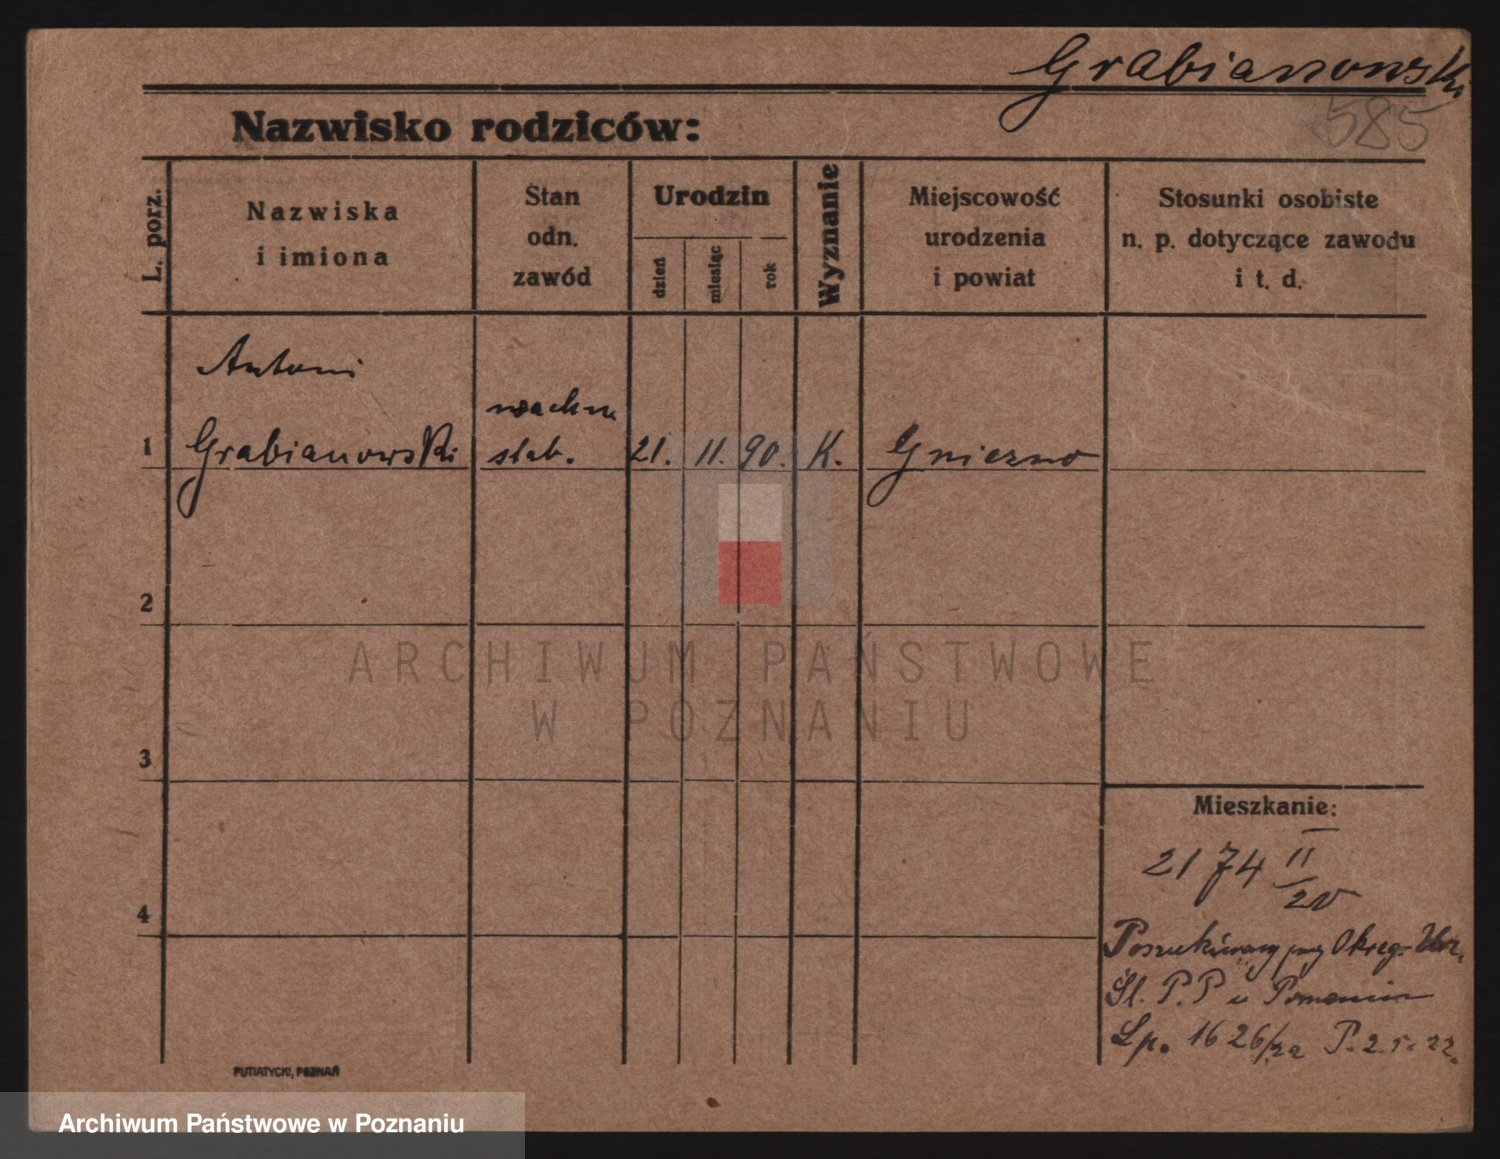 Grabianowski
585
Nazwisko rodziców:
L. porz.
Nazwiska
i imiona
Stan
odn.
zawód
Urodzin
dzień
miesiąc
rok
Wyznanie
Miejscowość
urodzenia
i powiat
Stosunki osobiste
n. p. dotyczące zawodu
i t. d.
Antoni
wachm
1 Grabianowski szab. 21. 11. 90. K. Gniezno
2
ARCHIWUM PAŃSTWOWE
W POZNANIU
3
Mieszkanie:
2174 II/20
4
Poszukiwany przez Okręg. Urz.
Śl. P.P w Poznaniu
Lp. 1626/22 P. 2.5.22.
PUTIATYCKI, POZNAŃ
Archiwum Państwowe w Poznaniu